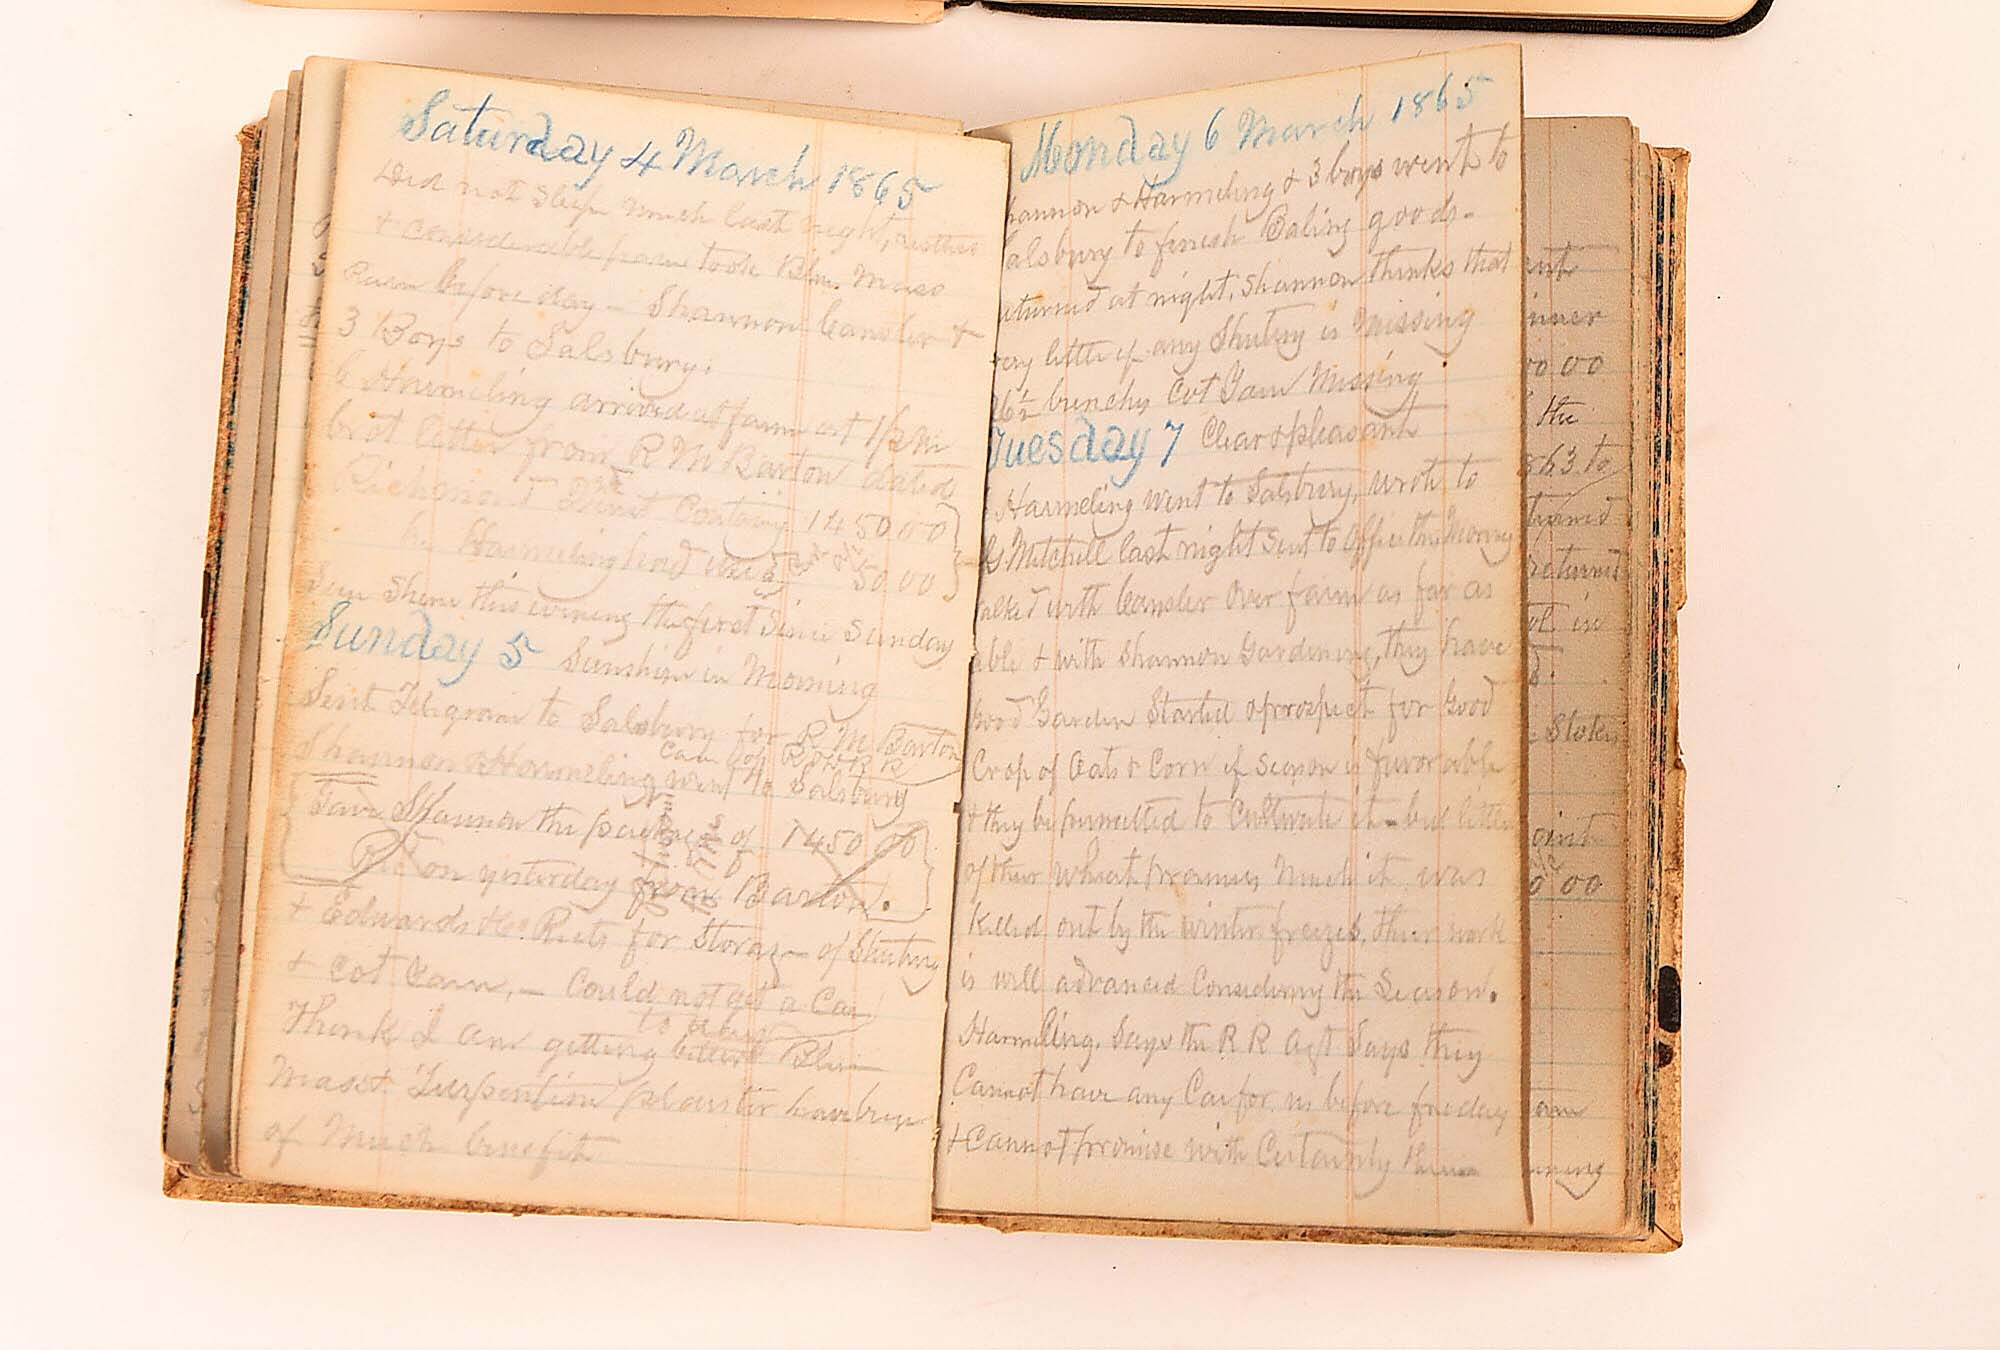 Saturday 4 March 1865
Did not sleep much last night, restless
& considerable pain took Blue Mass
Rain before day – Shannon Cansler &
3 Boys to Salsbury.
Harmeling arrived at farm at 1 PM
brot letter from R M Barton dated
Richmond Containg 1450.00
Harmeling had used 50.00
Sun Shine this evening the first Since Sunday
Sunday 5 Sunshine in Morning
Sent Telegram to Salsbury for R M Barton
Shannon & Harmeling went to Salsbury
Gave Shannon the package of 1450 00
Recd on yesterday from Barton.
& Edwards Rects for Storage – of Shirting
& Cot Yarn, – Could not get a Car
to day
Think I am getting better Blue
Mass & Turpentine plaster have been
of Much benefit
Monday 6 March 1865
hannon & Harmeling & 3 boys went to
alsbury to finish Baling goods –
eturned at night, Shannon thinks that
ery little if any Shirting is Missing
26½ bunches Cot Yarn Missing
Tuesday 7 Clear & pleasant
Harmeling went to Salsbury, wrote to
G Mitchell last night Sent to Office this Morng
alked with Cansler Over farm as far as
able & with Shannon Gardening, they have
Good Garden Started & prospect for Good
Crop of Oats & Corn if Season is favorable
& they be permitted to Cultivate it – but little
of their Wheat promises Much it was
Killed out by the winter freezes, their work
is well advanced Considering the Season.
Harmeling. Says the R R agt Says they
Cannot have any Car for us before friday
& Cannot promise with Certainty then
inner
00 00
the
863 to
returned
in
00